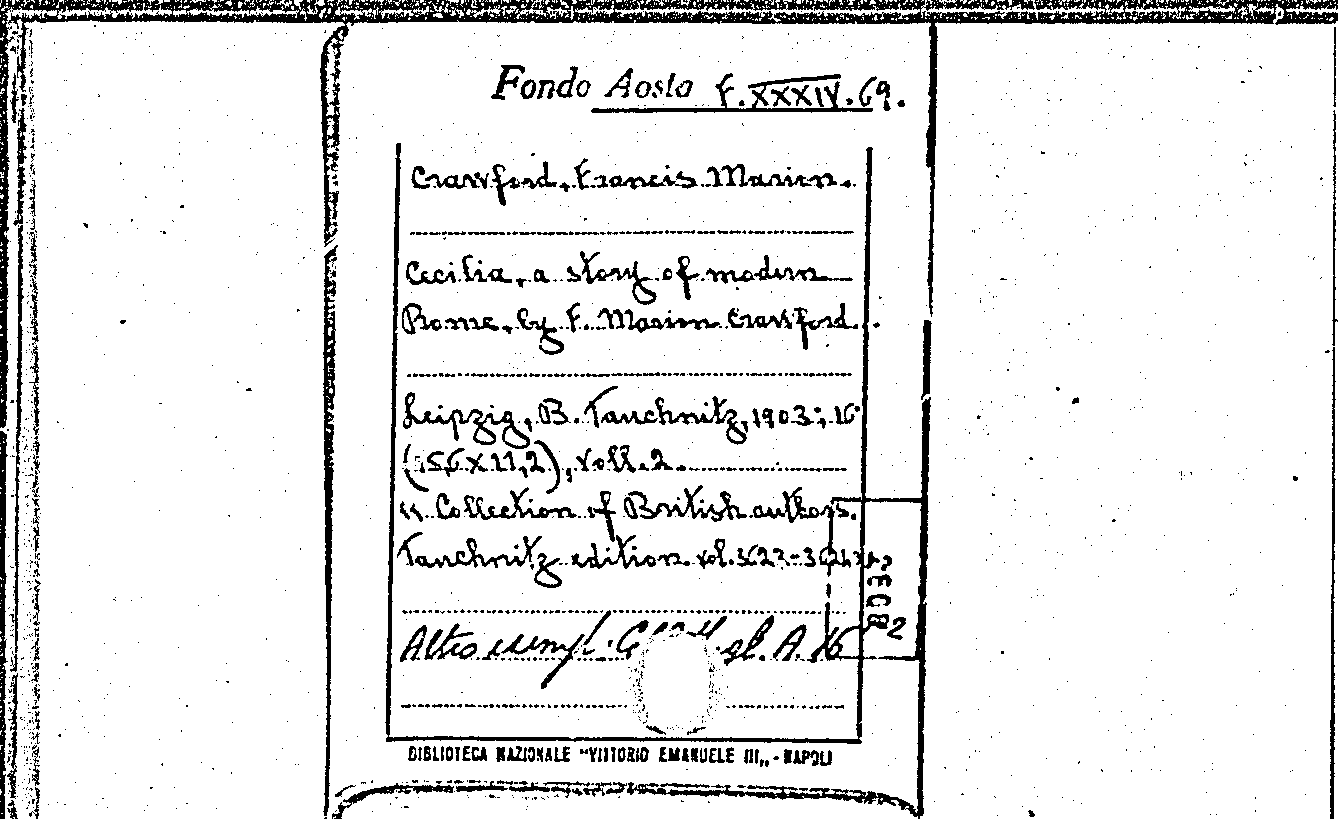 Fondo Aosta F. XXXIV. 69.
Crawford, Francis Marion.
Cecilia, a story of modern
Rome, by F. Marion Crawford.
Leipzig, B. Tauchnitz, 1903; 16°
(15,6 x 11,2), voll. 2.
"Collection of British authors.
Tauchnitz edition vol. 3623-
Altro esempl. sl. A. 16
BIBLIOTECA NAZIONALE "VITTORIO EMANUELE III„ - NAPOLI